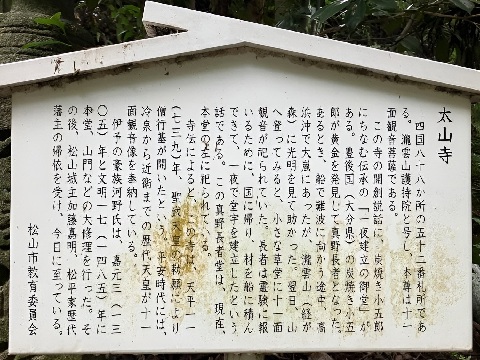 太山寺
四国八十八か所の五十二番札所であ
る。瀧雲山護持院と号し、本尊は十一
面観音菩薩である。
この寺の開創説話に、炭焼き小五郎
にちなむ伝承の「一夜建立の御堂」が
ある。豊後国(大分県)の炭焼き小五
郎が黄金を発見して真野長者となった。
あるとき、船で難波に向かう途中、高
浜沖で大嵐にあったが、瀧雲山(経が
森)に光明を見て助かった。翌日、山
へ登ってみると、小さな草堂に十一面
観音が祀られていた。長者は霊験に報
いるために、国に帰り、材を船に積ん
できて、一夜で堂宇を建立したという
話である。この真野長者堂は、現在、
本堂の に祀られている。
寺伝によると、この寺は、天平十一
(七三九)年、聖武天皇の勅願により
僧行基が開いたという。平安時代には、
冷泉から近衛までの歴代天皇が十一
面観音像を奉納している。
伊予の豪族河野氏は、嘉元三(一三
〇五)年と文明一七(一四八五)年に
本堂、山門などの大修理を行った。そ
の後、松山城主加藤嘉明、松平家歴代
藩主の帰依を受け、今日に至っている。
松山市教育委員会